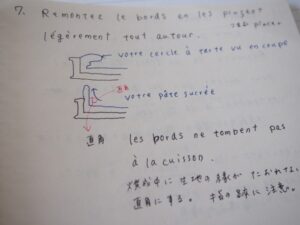 7. Remontez le bords en les pinçant
légèrement tout autour.
votre cercle à tarte vu en coupe
直角
votre pâte sucrée
直角
les bords ne tombent pas
à la cuisson.
焼成中に生地の縁がたおれない
直角にする。 に注意。